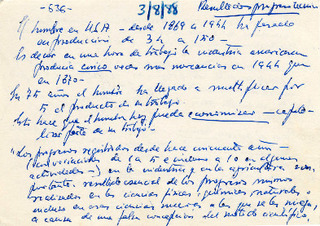 -536- 3/8/88 Resultados
El hombre en USA - desde 1869 a 1944 ha pasado
en producción de 34 a 150 -
Es decir en una hora de trabajo la industria americana
producía cinco veces más mercancías en 1944 que
en 1870 -
En 75 años el hombre ha llegado a multiplicar por
5 el producto de su trabajo.
Esto hace que el hombre hoy pueda economizar -
parte de su trabajo -
"Los progresos registrados desde hace cincuenta años -
(en variaciones de 1 a 5 e incluso a 10 en algunas
actividades) en la industria y en la agricultura son,
resultado esencial de los progresos mismos
realizados en las ciencias físicas y químicas naturales.
incluso en esas ciencias nuevas a las que se les niega,
a causa de una falsa concepción del método científico,